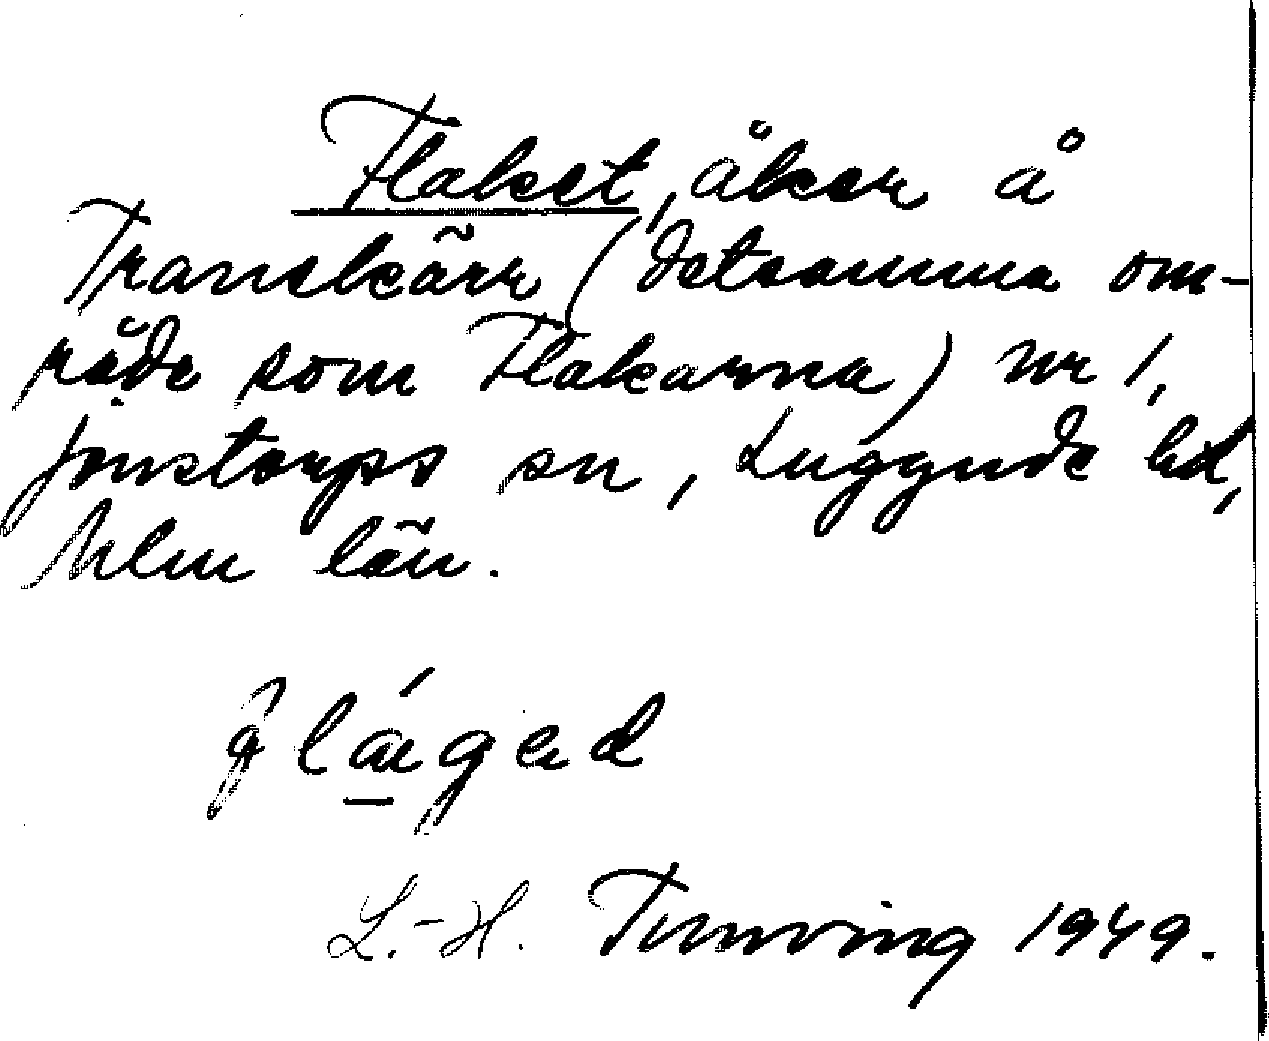 Flaket, åker å
Tranekärr (detsamma om-
råde som Flakarna) nr 1,
Jonstorps sn, Luggude hd,
Mlm län.
flǽged
L.-H. Tunving 1949.